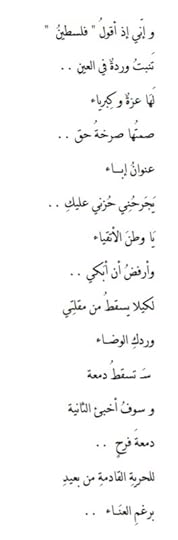 و إنّي إذ أقولُ " فلسطينُ "
تَنبتُ وردةٌ في العين . .
لَها عزةٌ وكِبرياء
صمتُها صرخةُ حق . .
عنوانُ إبـــاء
يَجرحُنِي حُزني عليكِ . .
يَا وطنَ الأتقياء
وأرفضُ أن أبكي . .
لَكيلا يسقطُ من مقلتِي
وردكِ الوضـاء
سـَ تسقطُ دمعة
و سوفُ أخبئ الثانية
دمعةَ فرحٍ . .
للحريةِ القادمةِ من بعيدِ
برغمِ العنـَـاء . .